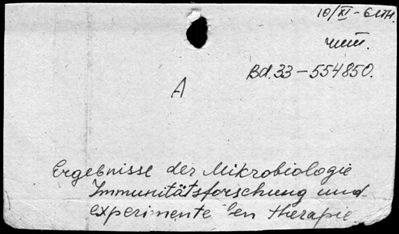 10/XI-61тн.
чит.
Bd.33-554850.
A
Ergebnisse der Mikrobiologie
Immunitätsforschung und
experimente en therapie